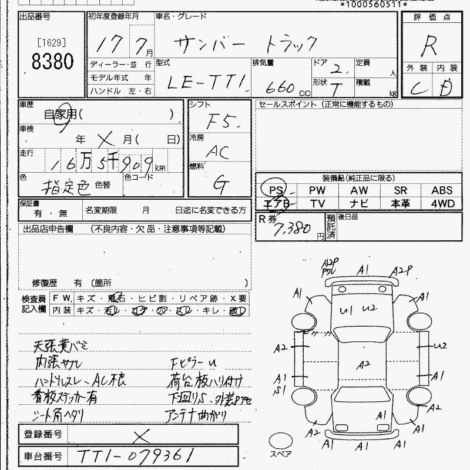 *1000560511*
出品番号 初年度登録年月 車名・グレード 評価点
[1629]
8380
17年 7月 サンバー トラック R
ディーラー・並行 型式 排気量 ドア 定員 外装 内装
モデル年式 年 LE-TT1 660cc 2. 人 C D
ハンドル 左・右 形状 T 積載 kg
車歴 自家用( ) シフト F5. セールスポイント(正常に機能するもの)
車検 年 × 月( 日) 冷房 AC
走行 16万5千909km 燃料 G
色 指定色 色替 色コード 装備欄(純正品に限る)
PS PW AW SR ABS
エアB TV ナビ 本革 4WD
保証書 有・無 名変期限 月 日迄に名変できる方
R券 7,380円 預託済 後日品
出品店申告欄 (不良内容・欠品・注意事項等記載)
修復歴 有 (箇所 )
検査員記入欄 F W. キズ・飛石・ヒビ割・リペア跡・X要
内装 キズ
天張黄バミ
内張ヤブレ Fピラーu
ハンドルスレ、AC不良 荷台板ハリ付
看板ステッカー有
シート角ヘタリ アンテナ曲がり
登録番号 ×
車台番号 TT1-079361
A2P A1 A2P
A1 A1
U1 U2
A1 A1
A2
A1 A1
S1
A2 A1 A2
A1
スペア